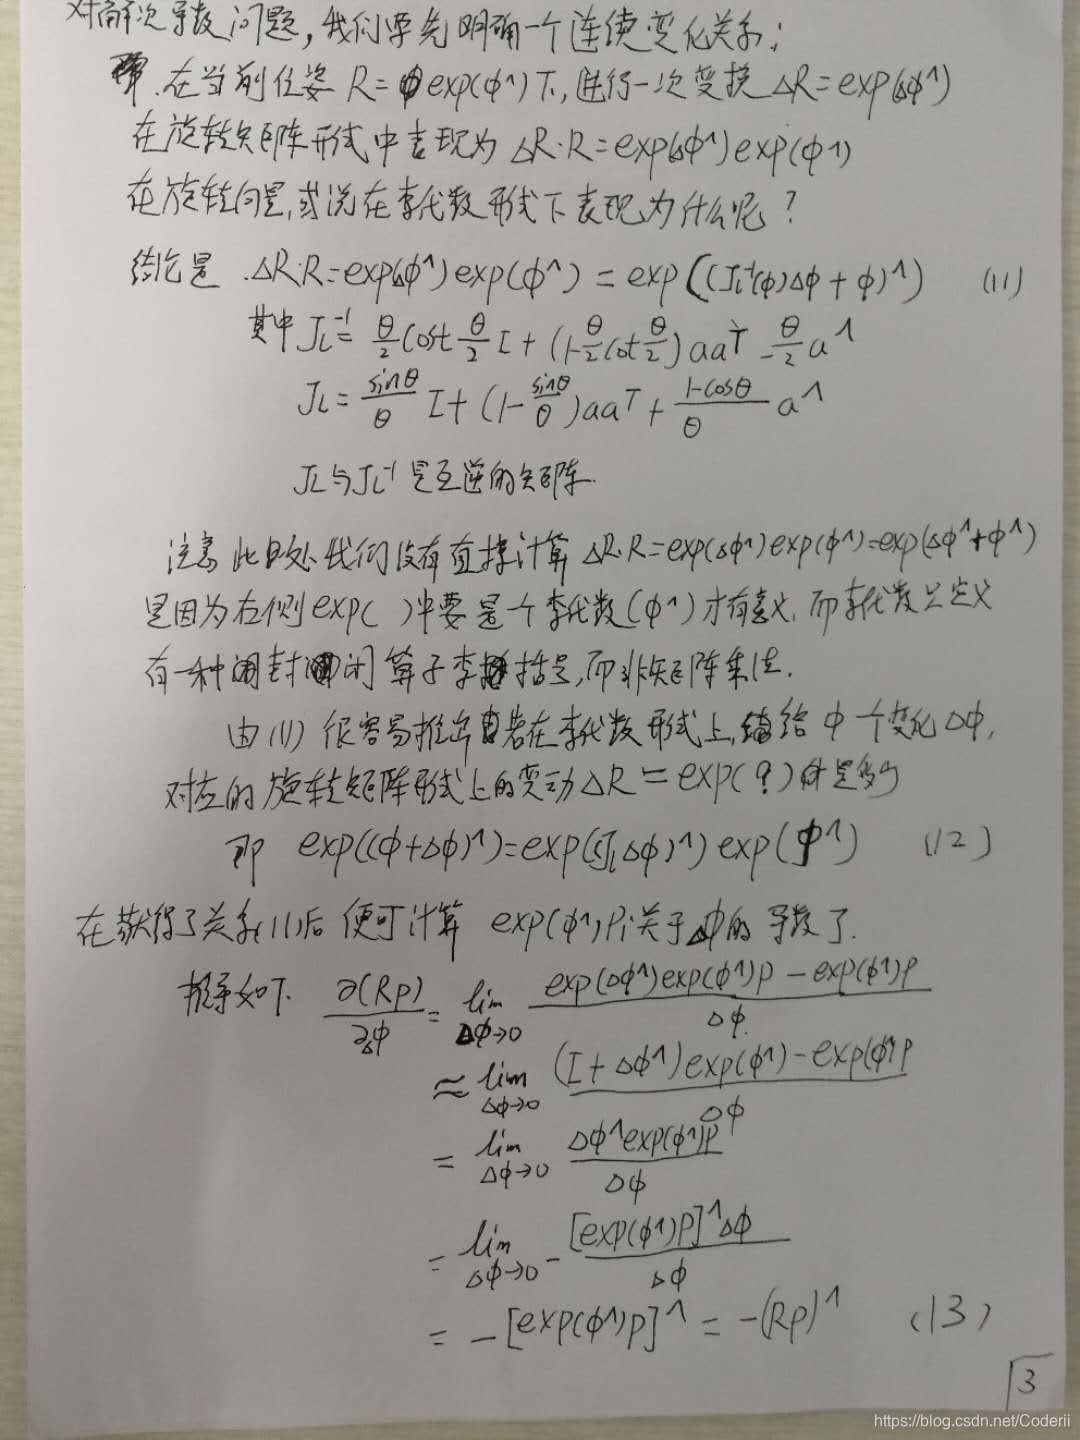 对解次导数问题,我们要先明确一个连续变化关系;
在当前位姿 R=exp(φ^)下,进行一次变换 ΔR=exp(Δφ^)
在旋转矩阵形式中表现为 ΔR·R=exp(Δφ^)exp(φ^)
在旋转向量,或说在李代数形式下表现为什么呢?
结论是 ΔR·R=exp(Δφ^)exp(φ^)=exp((J_L^-1(φ)Δφ+φ)^) (11)
其中 J_L^-1= θ/2 cot θ/2 I+(1-θ/2 cot θ/2)aa^T-θ/2 a^
J_L= sinθ/θ I+(1-sinθ/θ)aa^T+(1-cosθ)/θ a^
J_L与J_L^-1是互逆的矩阵.
注意 此处我们没有直接计算 ΔR·R=exp(Δφ^)exp(φ^)=exp(Δφ^+φ^)
是因为右侧exp( )中要是个李代数(φ^)才有意义,而李代数只定义
有一种封闭算子李括号,而非矩阵乘法.
由(11)很容易推出若在李代数形式上,给φ一个变化Δφ,
对应的旋转矩阵形式上的变动ΔR=exp(?)是多少
即 exp((φ+Δφ)^)=exp((J_LΔφ)^)exp(φ^) (12)
在获得了关系(11)后 便可计算 exp(φ^)Pi关于Δφ的导数了.
推导如下. ∂(Rp)/∂Δφ = lim Δφ→0 (exp(Δφ^)exp(φ^)p-exp(φ^)p)/Δφ
≈ lim Δφ→0 ((I+Δφ^)exp(φ^)-exp(φ^)p)/Δφ
= lim Δφ→0 Δφ^exp(φ^)p/Δφ
= lim Δφ→0 -[exp(φ^)p]^Δφ/Δφ
= -[exp(φ^)p]^ = -(Rp)^ (13)
3
https://blog.csdn.net/Coderii